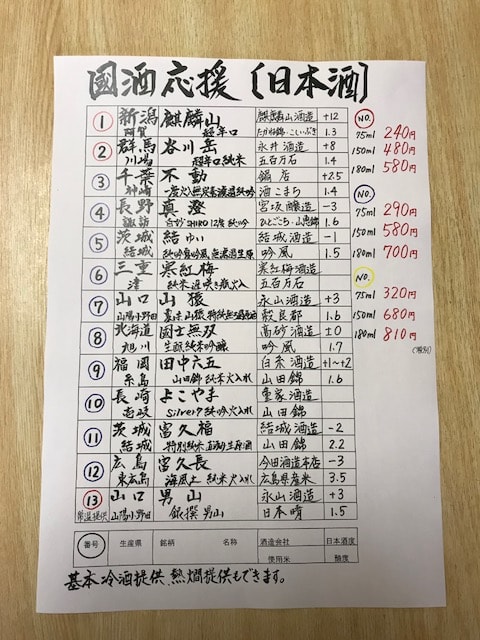 國酒応援〔日本酒〕
① 新潟 麒麟山 麒麟山酒造 +12
阿賀 超辛口 たかね錦・こしいぶき 1.3
② 群馬 谷川岳 永井酒造 +8
川場 超辛口純米 五百万石 1.4
③ 千葉 不動 鍋店 +2.5
神崎 一度火入無炭素濃過純吟 酒こまち 1.4
④ 長野 真澄 宮坂醸造 -3
諏訪 白妙SHIRO 12度 純吟 ひとごこち・山恵錦 1.6
⑤ 茨城 結ゆい 結城酒造 -1
結城 純吟 吟風 無濃過生原 吟風 1.5
⑥ 三重 寒紅梅 寒紅梅酒造
津 純米 遅咲き瓶火入 五百万石
⑦ 山口 山猿 永山酒造 +3
山陽小野田 穀良都 1.6
⑧ 北海道 國士無双 高砂酒造 ±0
旭川 生酛純米吟醸 吟風 1.7
⑨ 福岡 田中六五 白糸酒造 +1~+2
糸島 山田錦 純米火入れ 山田錦 1.6
⑩ 長崎 よこやま 重家酒造
壱岐 Silver7 純吟 火入れ 山田錦
⑪ 茨城 富久福 結城酒造 -2
結城 特別純米 直汲み生原酒 山田錦 2.2
⑫ 広島 富久長 今田酒造本店 -3
東広島 海風土 純米 火入れ 広島県産米 3.5
⑬ 山口 男山 永山酒造 +3
常温提供 山陽小野田 銀撰 男山 日本晴 1.5
NO.
75ml 240円
150ml 480円
180ml 580円
NO.
75ml 290円
150ml 580円
180ml 700円
NO.
75ml 320円
150ml 680円
180ml 810円
(税別)
番号 生産県 銘柄 名称 酒造会社 日本酒度
使用米 酸度
基本冷酒提供 熱燗提供もできます。